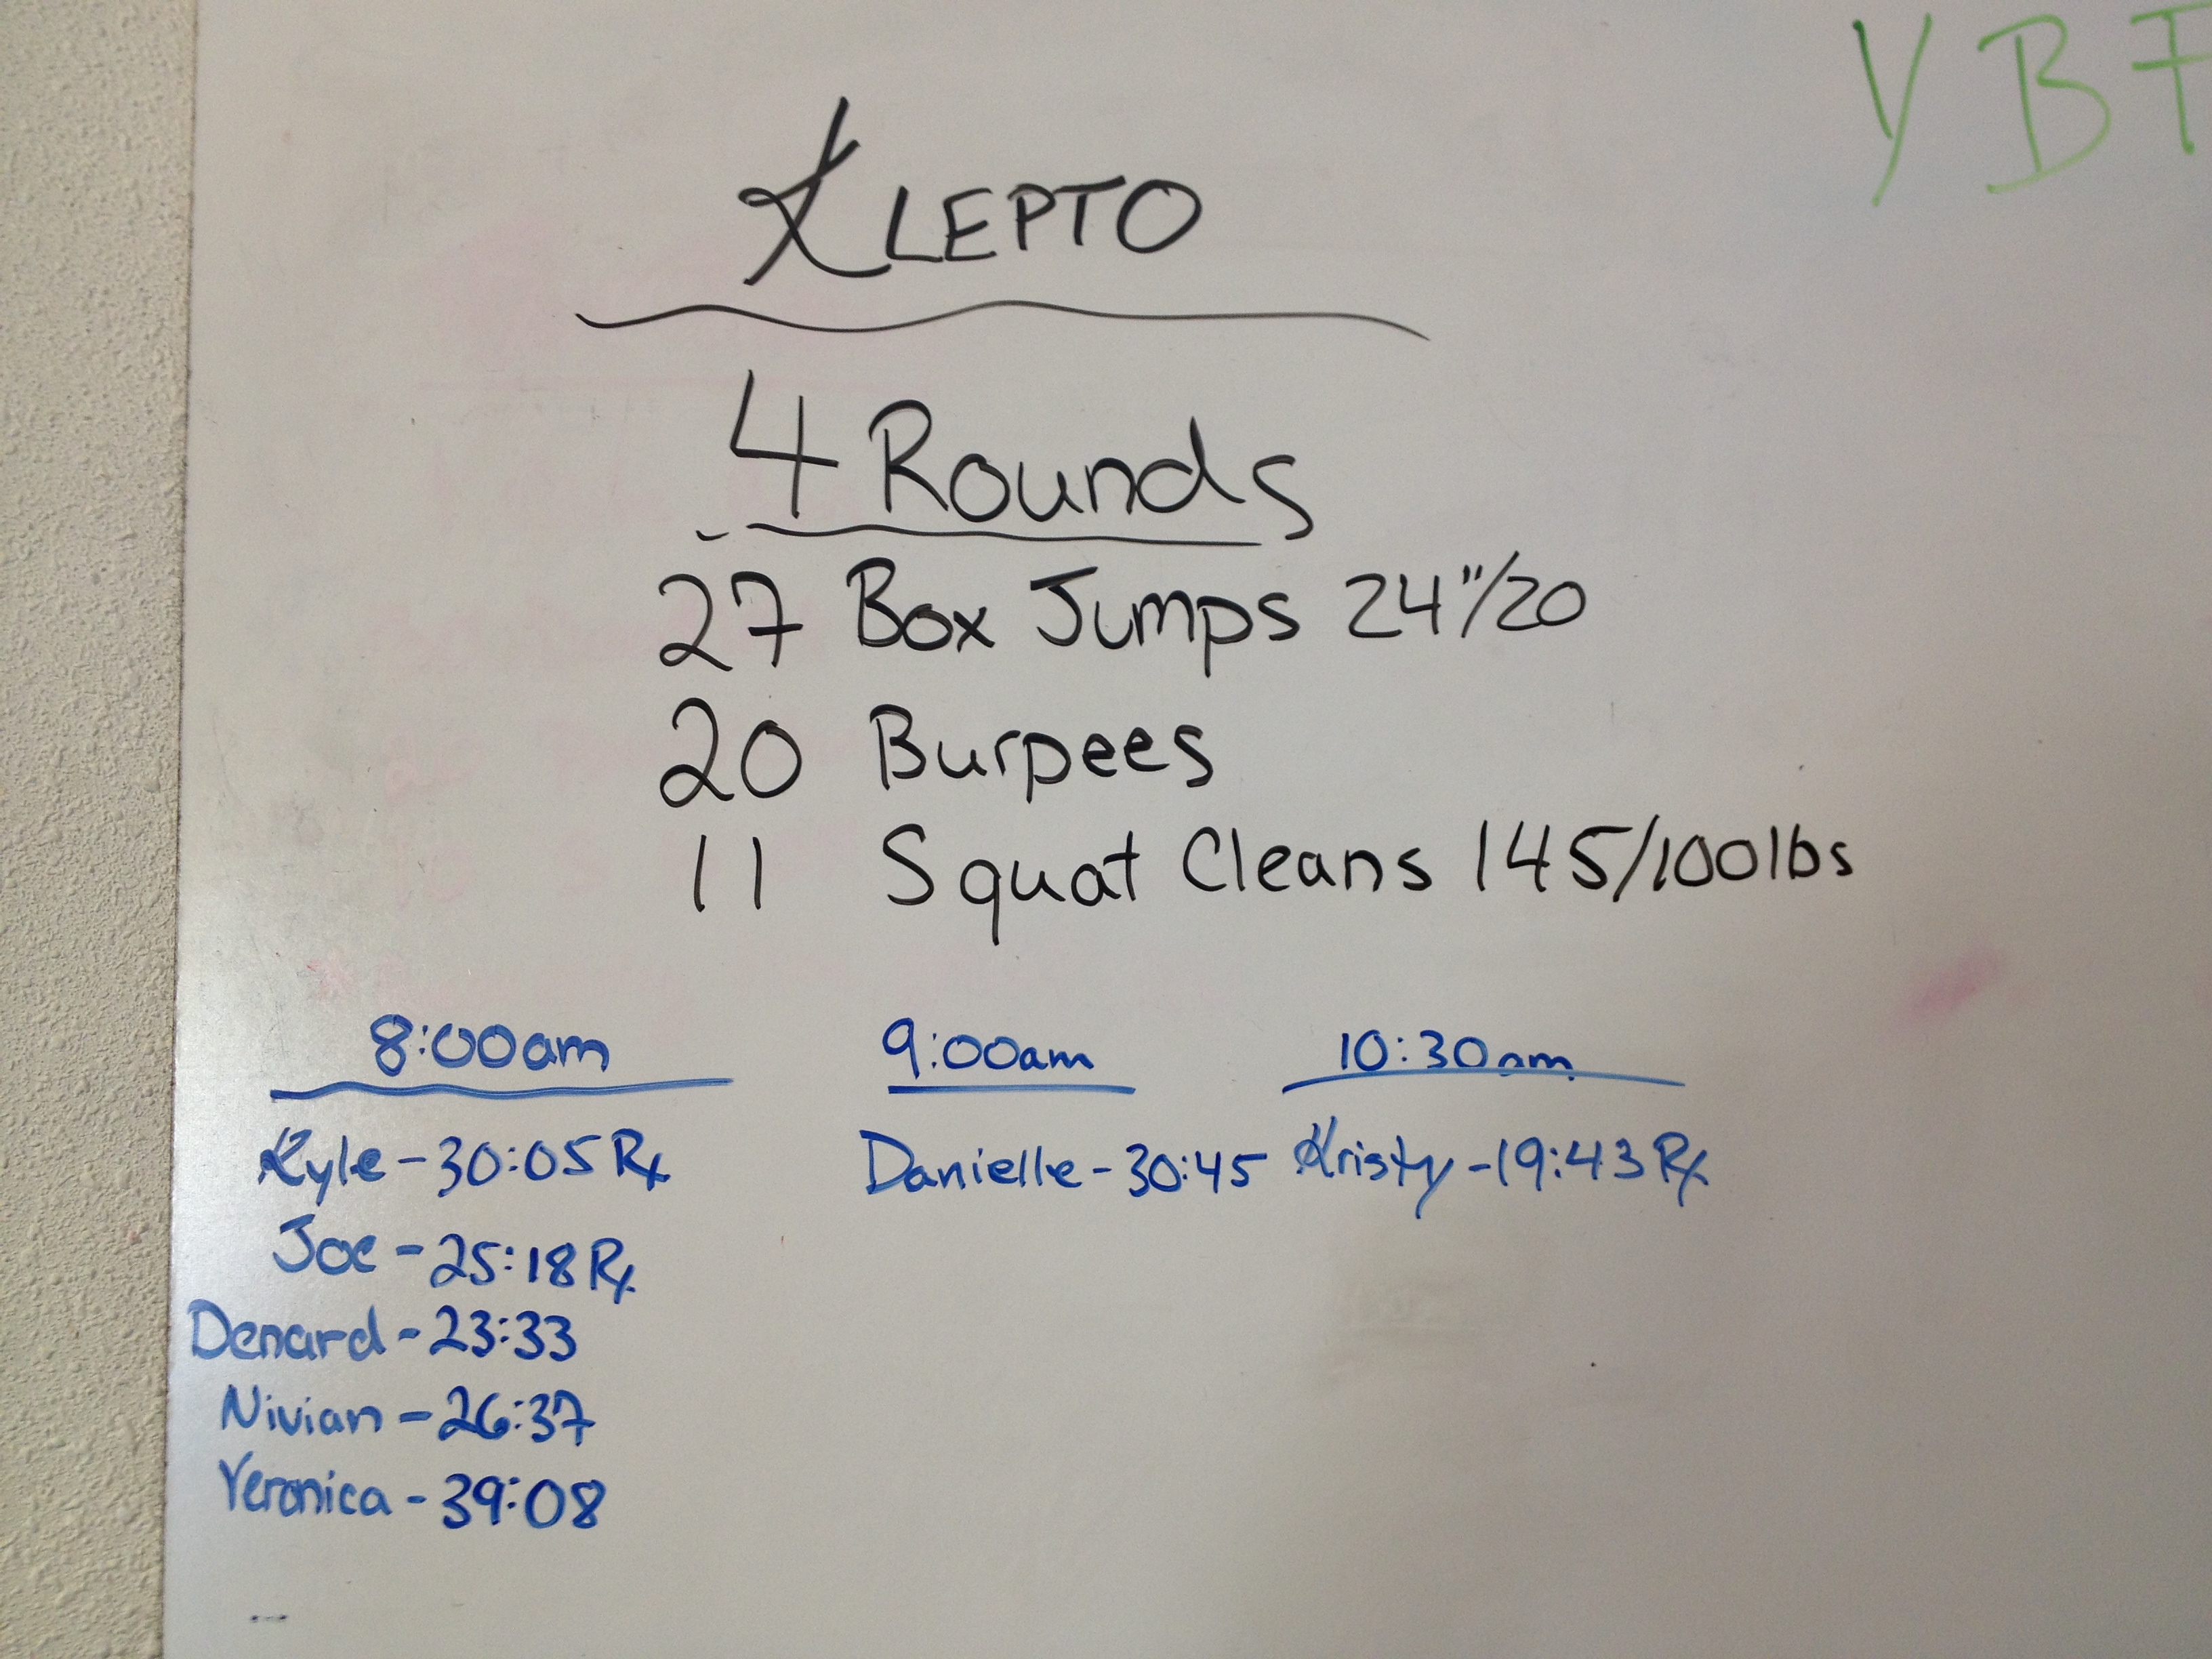 YBF
KLEPTO
4 Rounds
27 Box Jumps 24"/20
20 Burpees
11 Squat Cleans 145/100lbs
8:00am
Kyle - 30:05 Rx
Joe - 25:18 Rx
Denard - 23:33
Nivian - 26:37
Veronica - 39:08
9:00am
Danielle - 30:45
10:30am
Kristy - 19:43 Rx